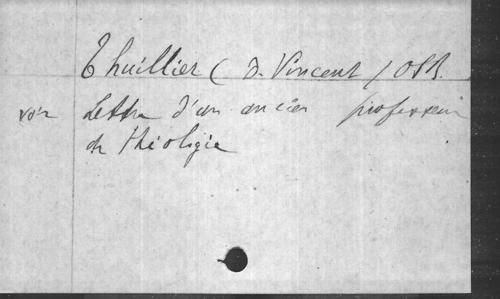 Thuillier ( D. Vincent ) OSB.
voir Lettre d'un ancien professeur
de Théologie